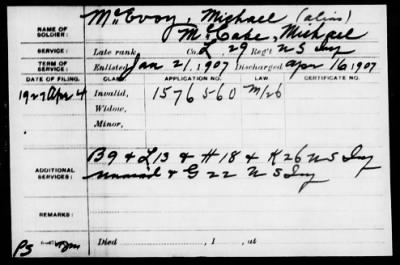 McEvoy, Michael (alias)
NAME OF SOLDIER: McCabe, Michael
SERVICE: Late rank Co. L. 29 Reg't U S Inf
TERM OF SERVICE: Enlisted Jan 21, 1907 Discharged Apr 16, 1907
DATE OF FILING. CLASS. APPLICATION NO. LAW. CERTIFICATE NO.
1927 Apr 4 Invalid, 1576560 M/26
Widow,
Minor,
B9 & L13 & H18 & K26 U S Inf
ADDITIONAL SERVICES: & G 22 U S Inf
REMARKS:
Died , 1 , at